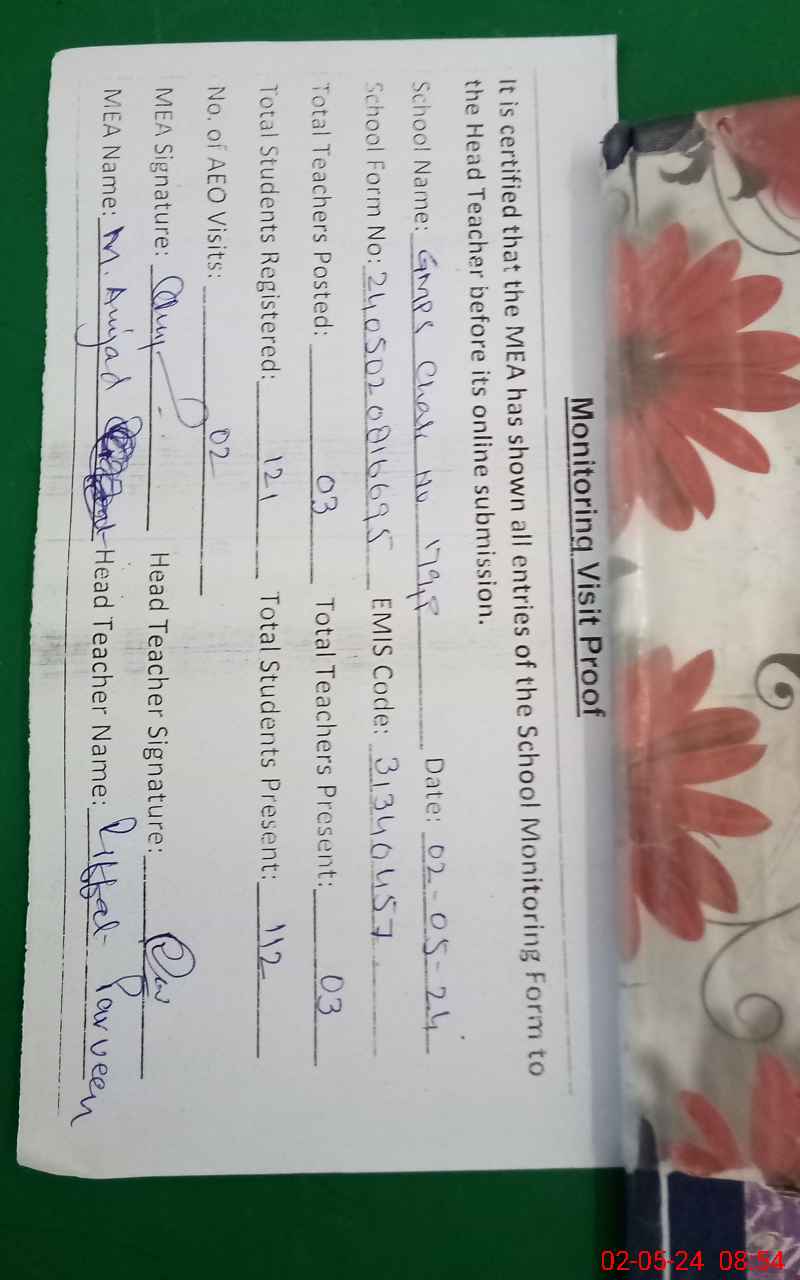 Monitoring Visit Proof
It is certified that the MEA has shown all entries of the School Monitoring Form to
the Head Teacher before its online submission.
School Name: GMPS Chak No Date: 02-05-24
School Form No: EMIS Code: 31340457
Total Teachers Posted: 03 Total Teachers Present: 03
Total Students Registered: 121 Total Students Present: 112
No. of AEO Visits: 02
MEA Signature: Head Teacher Signature:
MEA Name: M. Amjad Head Teacher Name: Riffat Parveen
02-05-24 08:54